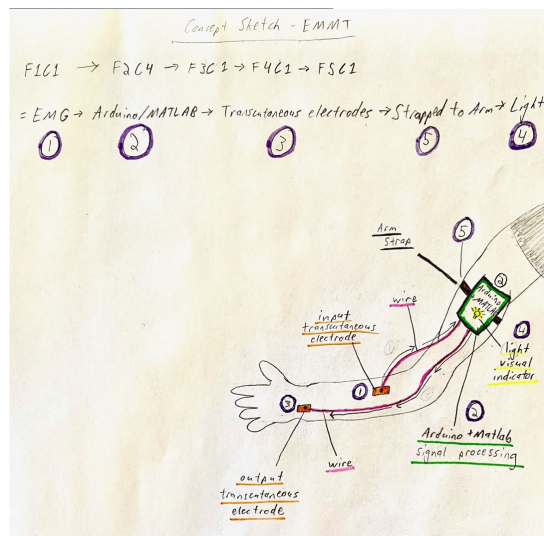 Concept Sketch - EMMT
F1C1 → F2C4 → F3C1 → F4C1 → F5C1
= EMG → Arduino/MATLAB → Transcutaneous electrodes → Strapped to Arm → Light
1 2 3 5 4
5
Arm
Strap
2
Arduino
+MATLAB
wire
input
transcutaneous
electrode
4
light
visual
indicator
1
3
2
Arduino + Matlab
signal processing
wire
output
transcutaneous
electrode